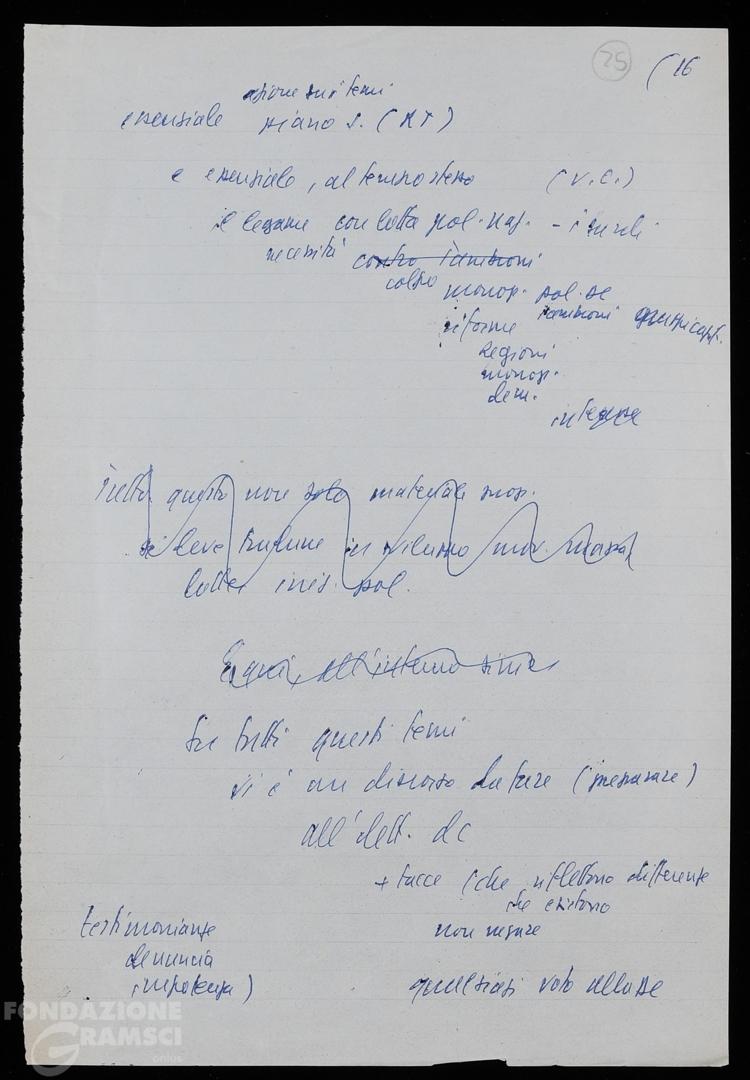 25
(16
azione sui temi
essenziale piano S. (RT)
e essenziale, al tempo stesso (V.C.)
il legame con lotta pol. naz. -
necessità contro Tambroni
colpo monop. pol. DC
Tambroni
riforme
Regioni
monop.
dem.
Tutto questo non solo materiale prop.
si deve tradurre in sviluppo mov. massa
lotte iniz. pol.
E qui, all'interno
Su tutti questi temi
vi è un discorso da fare (preparare)
all'elett. dc
+ facce (che riflettono differenze
che esistono
non negare
testimonianze
denuncia
impotenza)
qualsiasi voto alla DC
FONDAZIONE
GRAMSCI
onlus